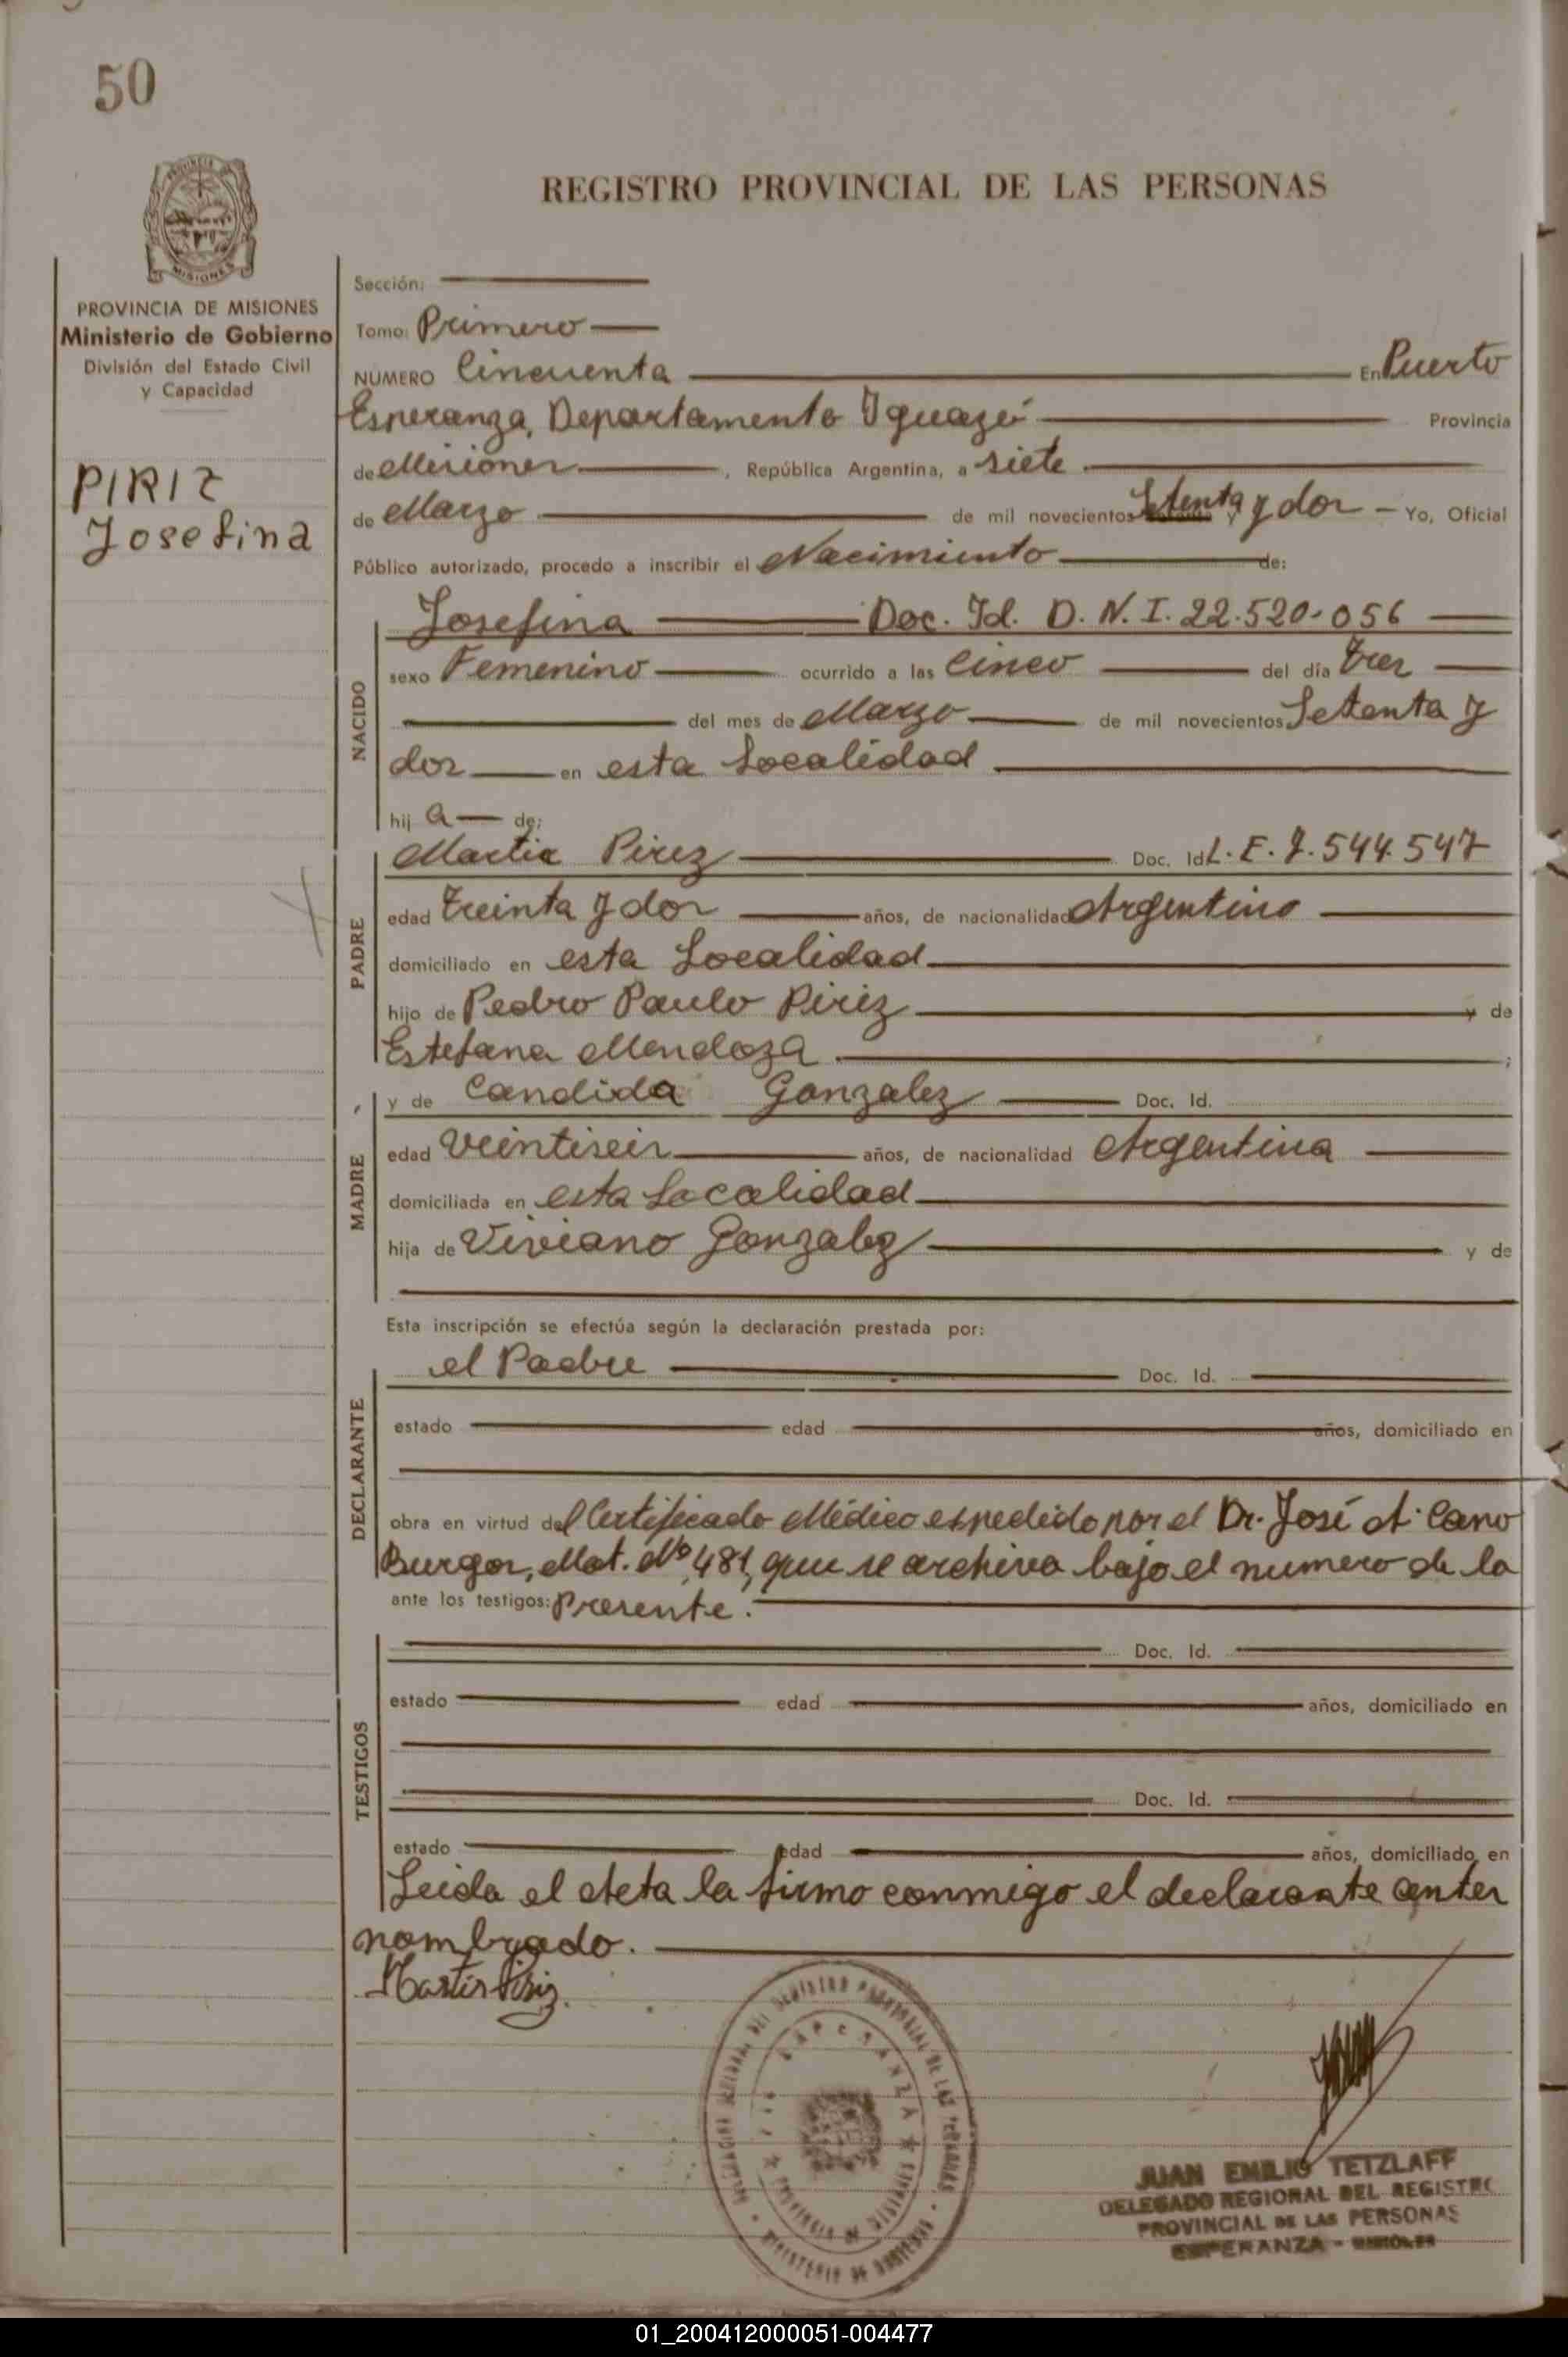 50
REGISTRO PROVINCIAL DE LAS PERSONAS
MISIONES
PROVINCIA DE MISIONES
Ministerio de Gobierno
División del Estado Civil
y Capacidad
PIRIZ
Josefina
Sección:
Tomo: Primero
NUMERO Cincuenta En Puerto
Esperanza, Departamento Iguazú Provincia
de Misiones, República Argentina, a siete
de Marzo de mil novecientos Setenta y dos Yo, Oficial
Público autorizado, procedo a inscribir el Nacimiento de:
NACIDO
Josefina Doc. Id. D. N. I. 22.520.056
sexo Femenino ocurrido a las Cinco del día tres
del mes de Marzo de mil novecientos Setenta y
dos en esta Localidad
hij a de:
PADRE
Martin Piriz Doc. Id L. E. 7.544.547
edad treinta y dos años, de nacionalidad Argentino
domiciliado en esta Localidad
hijo de Pedro Paulo Piriz y de
Estefana Mendoza ;
MADRE
y de Candida Gonzalez Doc. Id.
edad veintiseis años, de nacionalidad Argentina
domiciliada en esta Localidad
hija de Viviano Gonzalez y de
Esta inscripción se efectúa según la declaración prestada por:
DECLARANTE
el Padre Doc. Id.
estado edad años, domiciliado en
obra en virtud del Certificado Médico espedido por el Dr. José A. Cano
Burgos, Mat. Nº 481, que se archiva bajo el numero de la
ante los testigos: Presente.
TESTIGOS
Doc. Id.
estado edad años, domiciliado en
Doc. Id.
estado edad años, domiciliado en
Leida el Acta la firmo conmigo el declarante antes
nombrado.
Martin Piriz.
JUAN EMILIO TETZLAFF
DELEGADO REGIONAL DEL REGISTRO
PROVINCIAL DE LAS PERSONAS
ESPERANZA - MISIONES
01_200412000051-004477